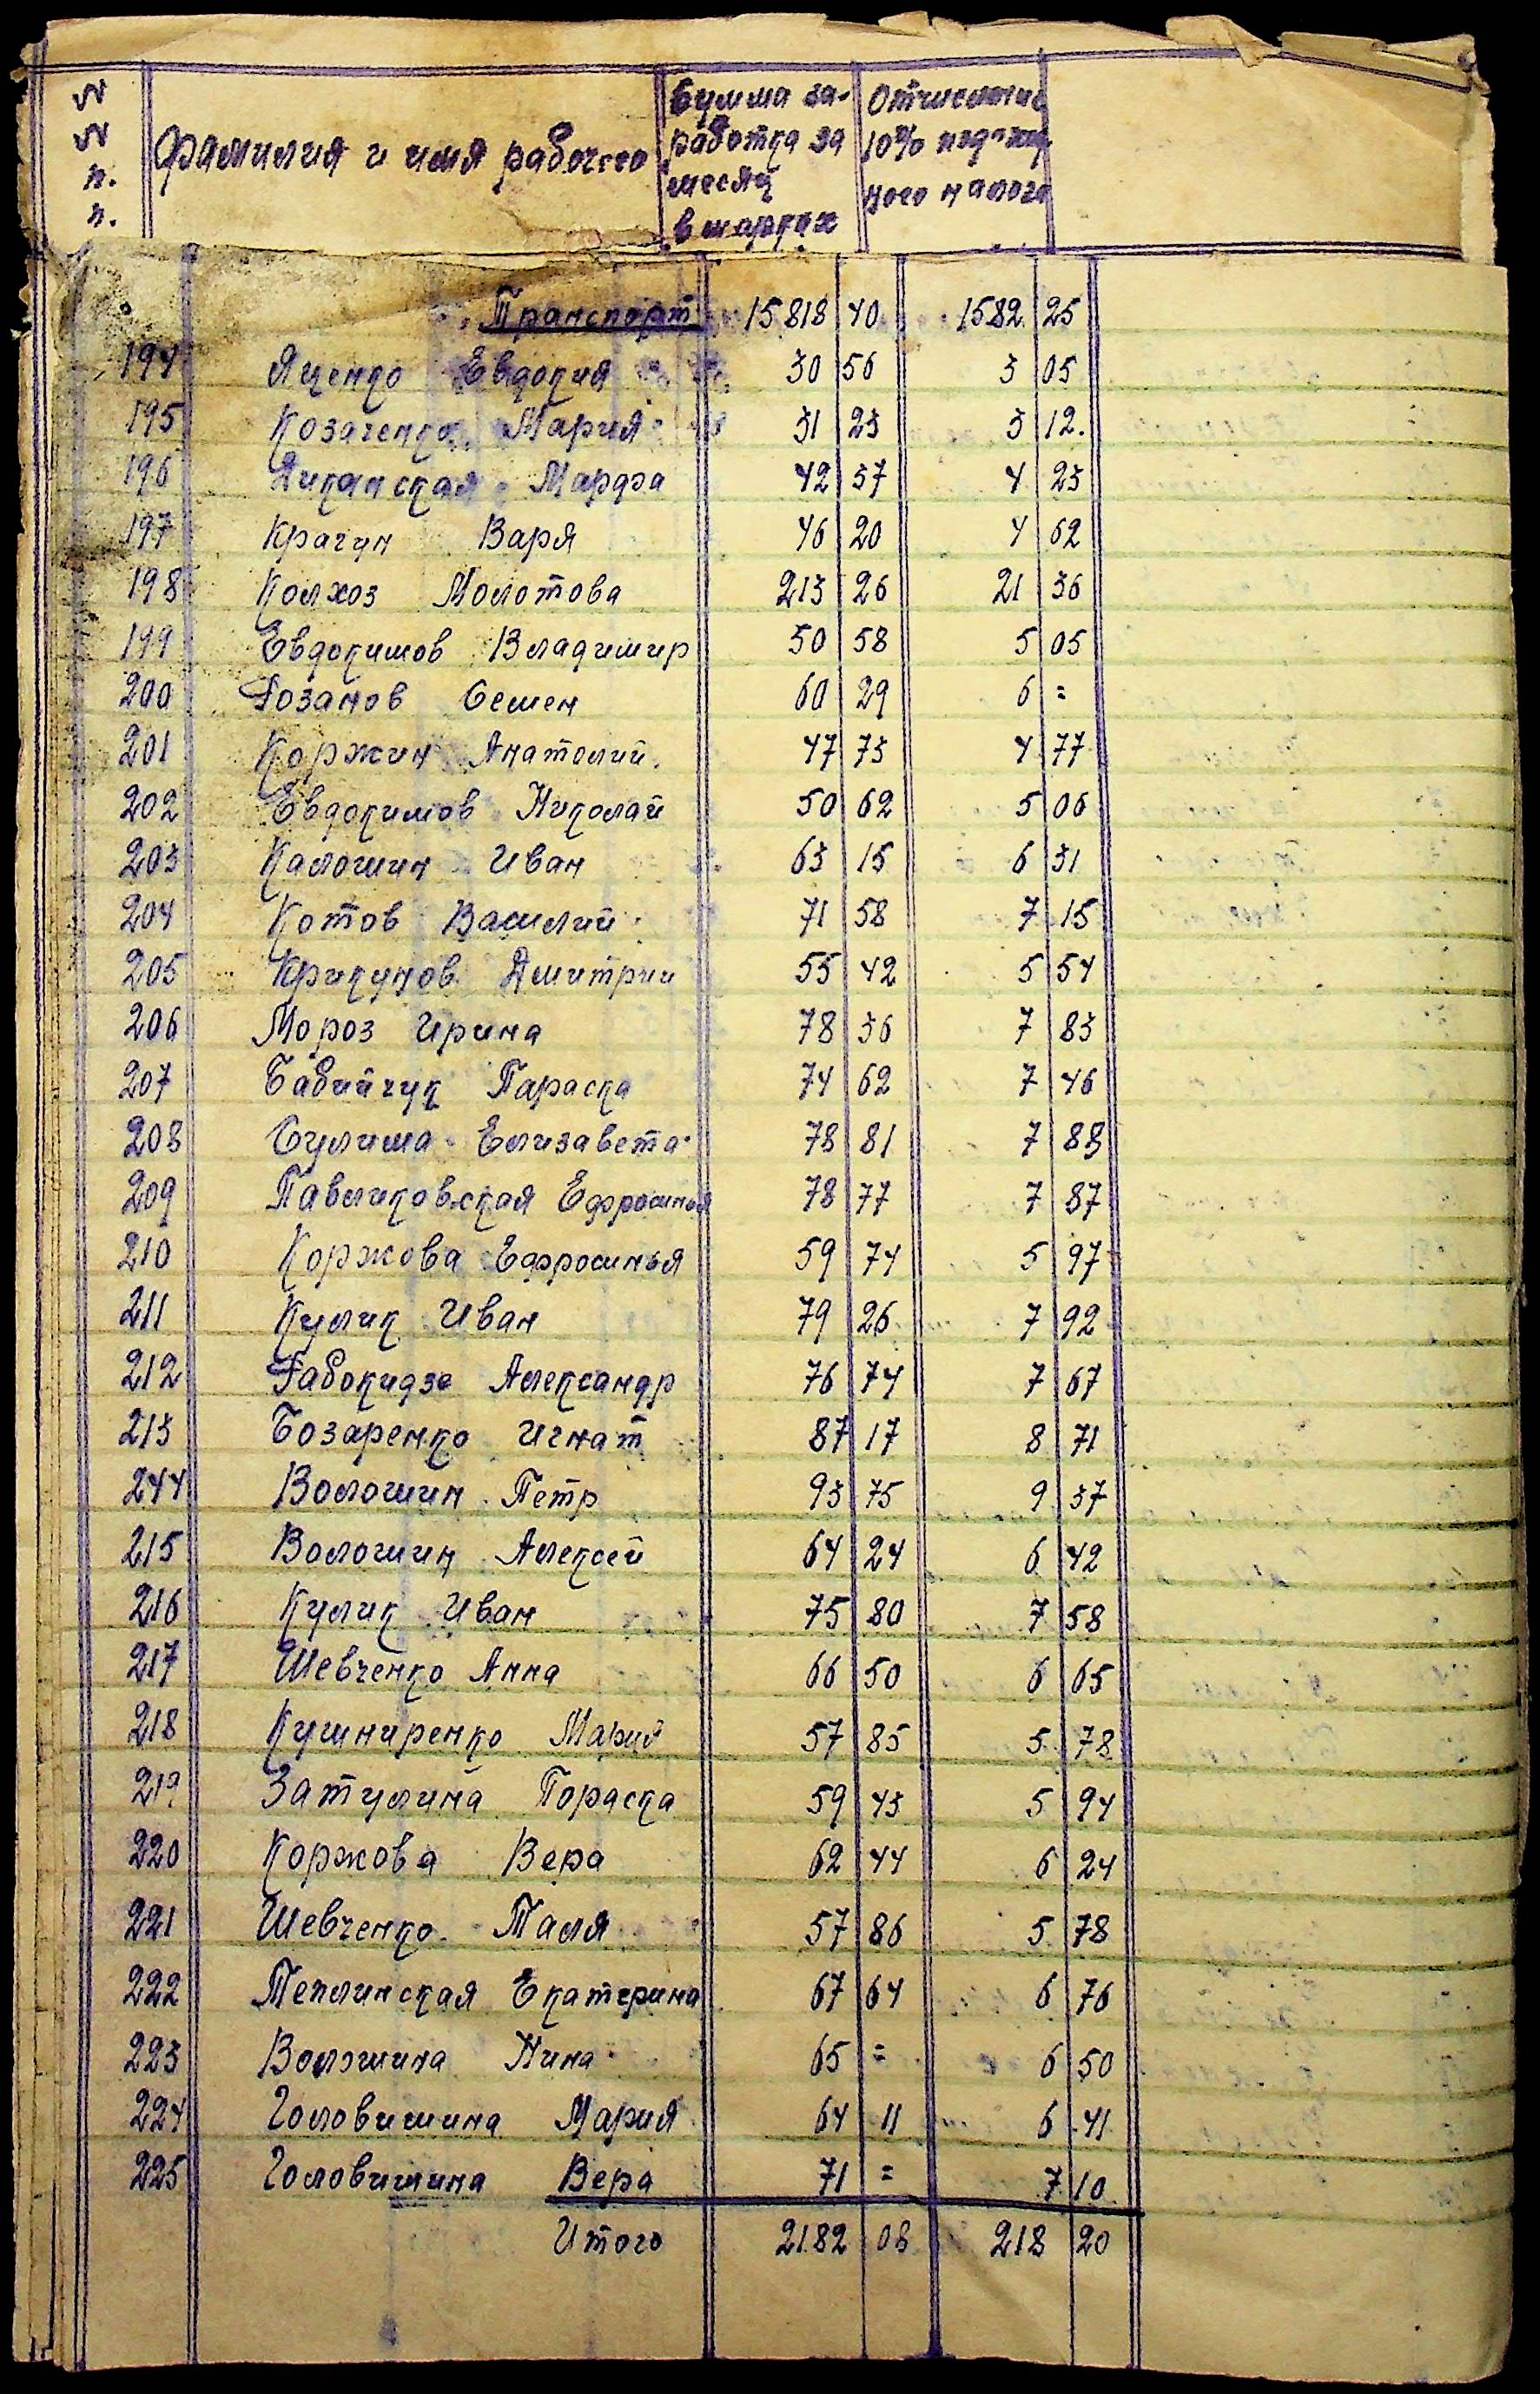 № № п. п. Фамилия и имя рабочего Сумма заработка за месяц в марках Отчисления 10% подоходного налога
Транспорт 15818 40 1582 25
194 Яценко Евдокия 30 56 3 05
195 Козаченко Мария 31 23 3 12.
196 Диканская Марфа 42 37 4 23
197 Крачун Варя 46 20 4 62
198 Колхоз Молотова 213 26 21 36
199 Евдокимов Владимир 50 58 5 05
200 Розанов Семен 60 29 6 =
201 Коржин Анатолий. 47 73 4 77
202 Евдокимов Николай 50 62 5 06
203 Калошин Иван 63 15 6 31
204 Котов Василий 71 58 7 15
205 Крикунов Дмитрии 55 42 5 54
206 Мороз Ирина 78 36 7 83
207 Бабийчук Параска 74 62 7 46
208 Сулима Елизавета 78 81 7 88
209 Павликовская Ефросинья 78 77 7 87
210 Коржова Ефросинья 59 74 5 97
211 Кулик Иван 79 26 7 92
212 Рабокидзе Александр 76 74 7 67
213 Бозаренко Игнат 87 17 8 71
244 Волошин Петр 93 75 9 37
215 Волошин Алексей 64 24 6 42
216 Кулик Иван 75 80 7 58
217 Шевченко Анна 66 50 6 65
218 Кушниренко Мария 57 85 5 78
219 Затулина Пораска 59 43 5 94
220 Коржова Вера 62 44 6 24
221 Шевченко Таля 57 86 5 78
222 Теплинская Екатерина 67 64 6 76
223 Волошина Нина 65 = 6 50
224 Головишина Мария 64 11 6 41
225 Головишина Вера 71 = 7 10
Итого 2182 08 218 20